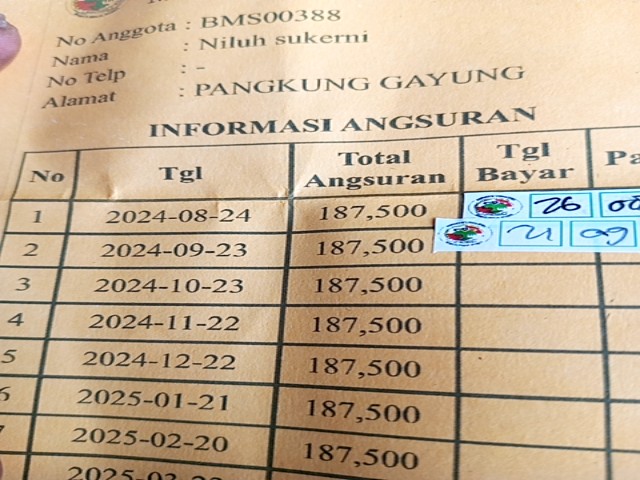 No Anggota : BMS00388
Nama : Niluh sukerni
No Telp : -
Alamat : PANGKUNG GAYUNG
INFORMASI ANGSURAN
No Tgl Total Angsuran Tgl Bayar
1 2024-08-24 187,500 26
2 2024-09-23 187,500 21 09
3 2024-10-23 187,500
4 2024-11-22 187,500
5 2024-12-22 187,500
6 2025-01-21 187,500
2025-02-20 187,500